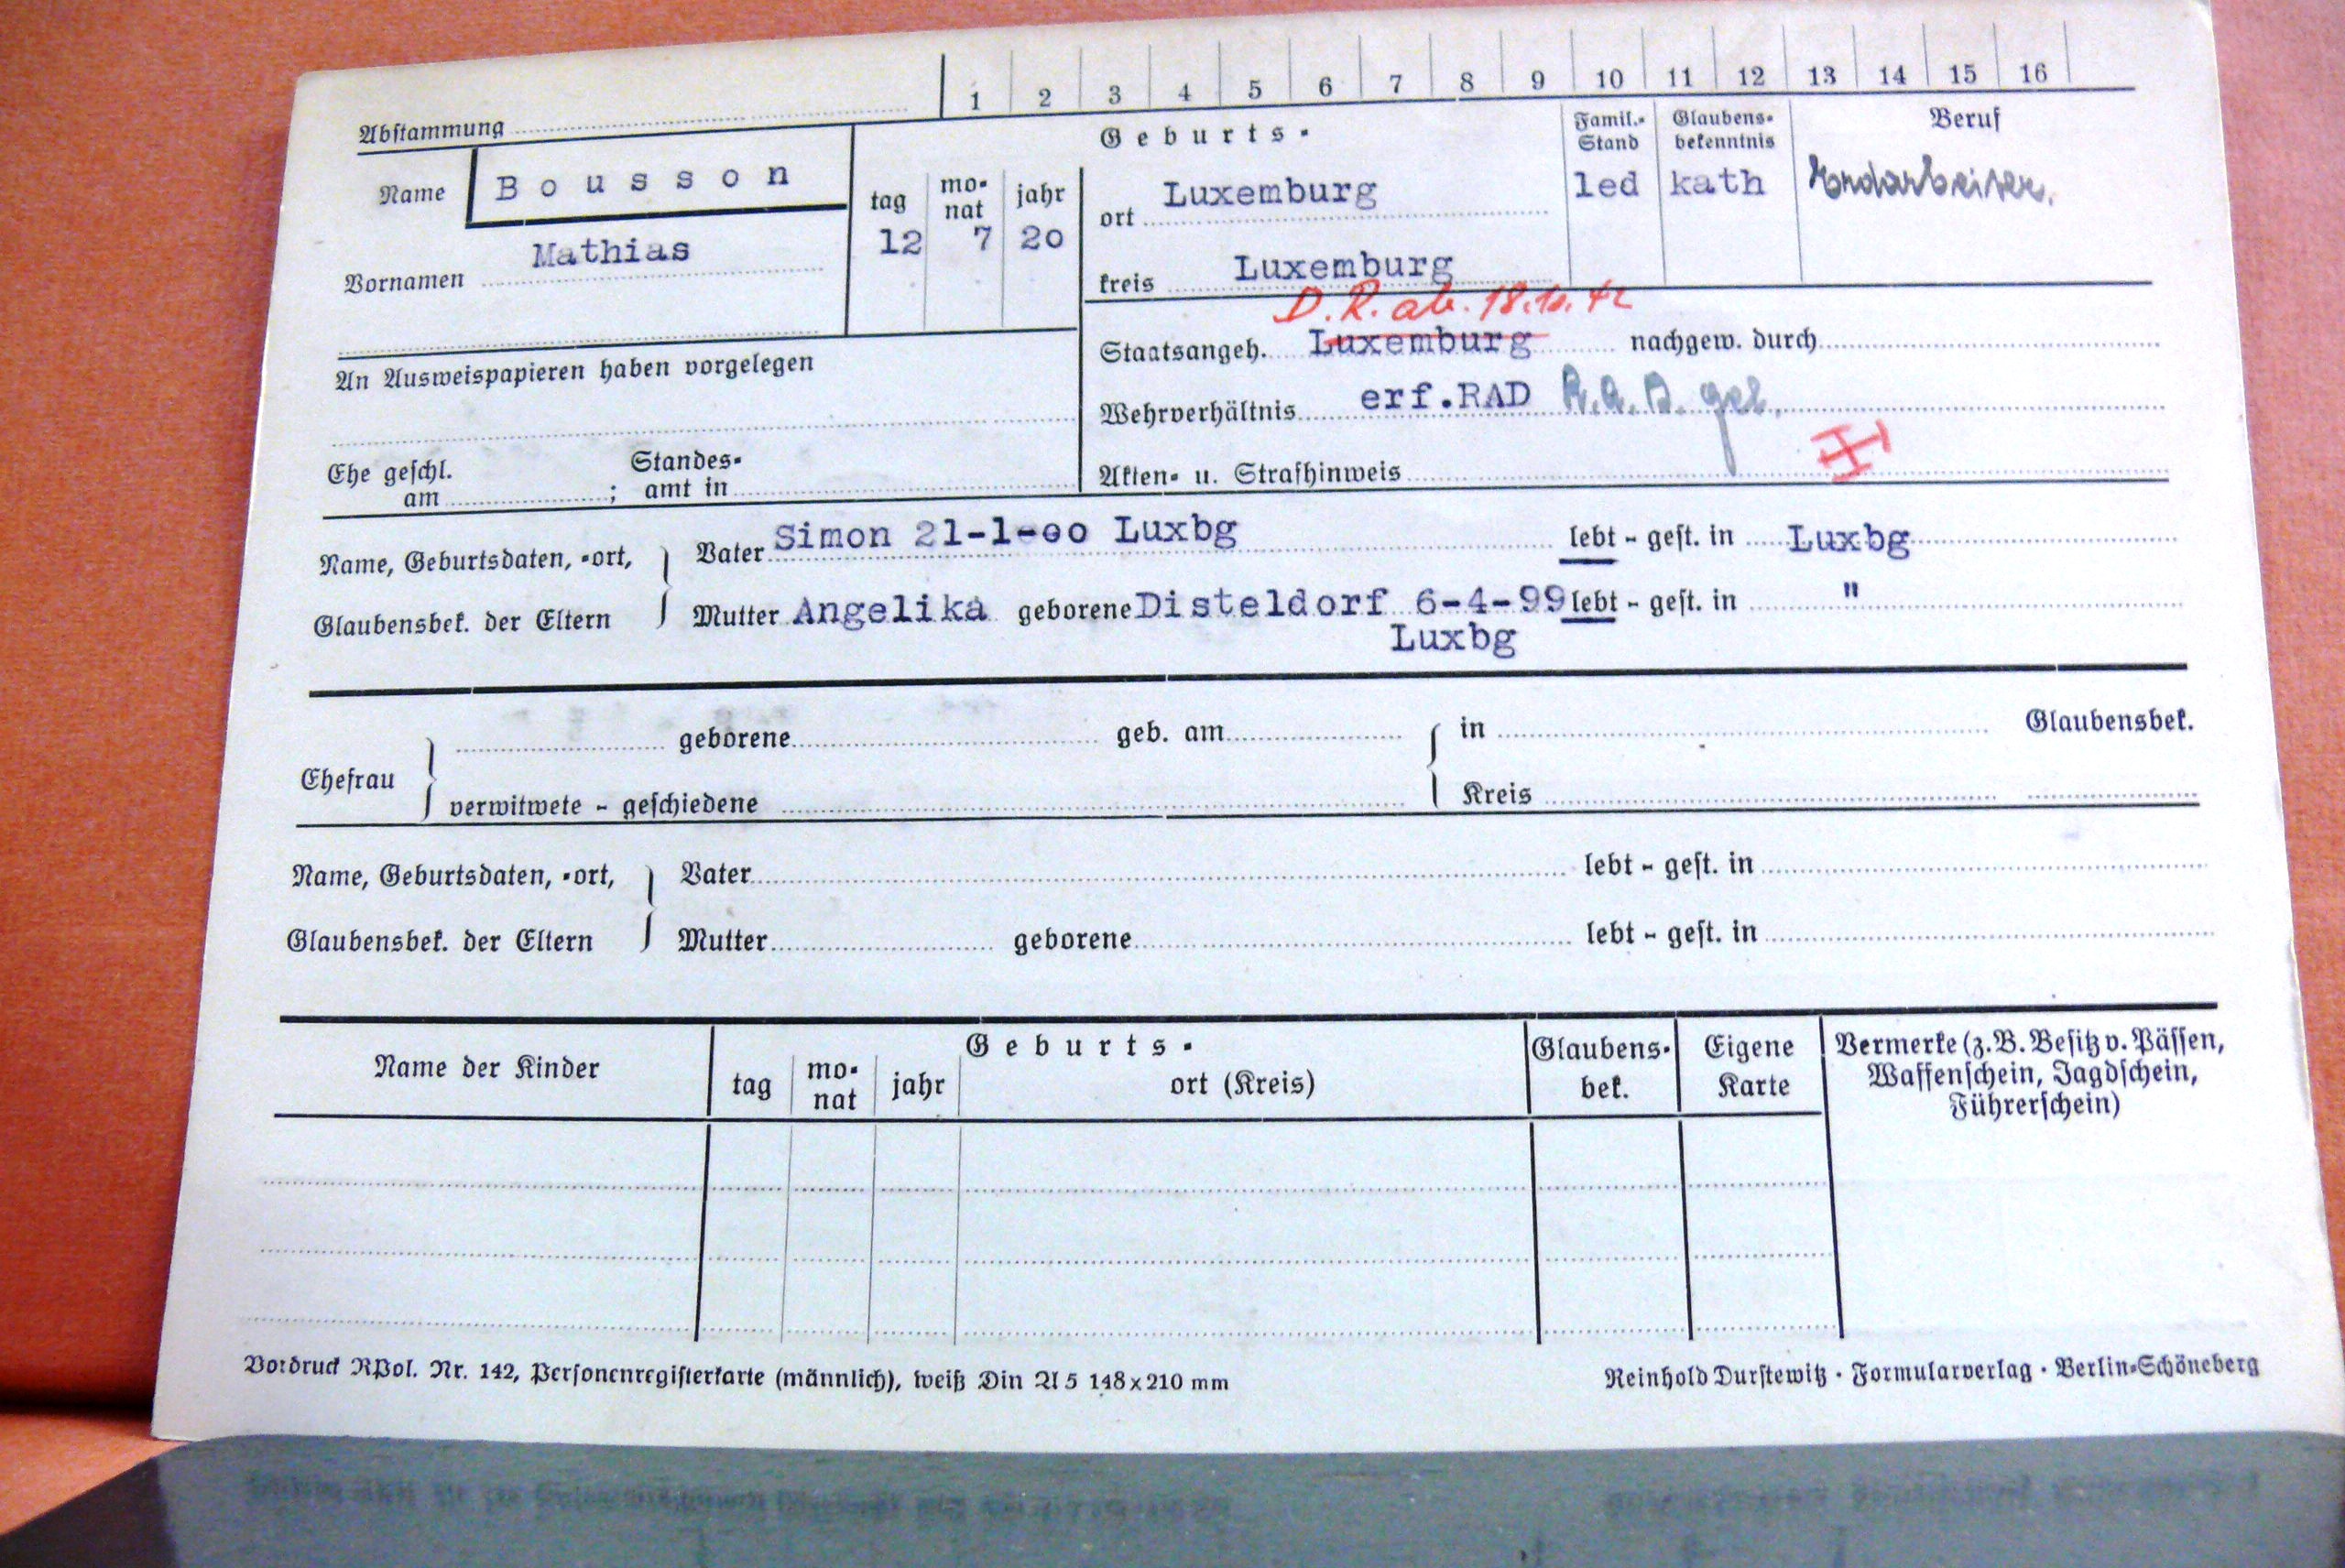 1 2 3 4 5 6 7 8 9 10 11 12 13 14 15 16
Abstammung
Name Bousson
Vornamen Mathias
tag monat jahr
12 7 20
Geburts-
ort Luxemburg
kreis Luxemburg
Famil.-Stand Glaubens-bekenntnis Beruf
led kath Erdarbeiter.
D.R. ab. 18.10.42
Staatsangeh. Luxemburg nachgew. durch
An Ausweispapieren haben vorgelegen
Wehrverhältnis erf.RAD R.A.D. gel.
Ehe geschl. am ; Standes-amt in
Akten- u. Strafhinweis
Name, Geburtsdaten, -ort, Vater Simon 21-1-00 Luxbg lebt - gest. in Luxbg
Glaubensbek. der Eltern Mutter Angelika geborene Disteldorf 6-4-99 lebt - gest. in "
Luxbg
Ehefrau geborene geb. am in Glaubensbek.
verwitwete - geschiedene Kreis
Name, Geburtsdaten, -ort, Vater lebt - gest. in
Glaubensbek. der Eltern Mutter geborene lebt - gest. in
Name der Kinder
Geburts-
tag monat jahr ort (Kreis)
Glaubens-bek.
Eigene Karte
Vermerke (z.B. Besitz v. Pässen,
Waffenschein, Jagdschein,
Führerschein)
Vordruck RPol. Nr. 142, Personenregisterkarte (männlich), weiß Din A 5 148x210 mm
Reinhold Durstewitz · Formularverlag · Berlin-Schöneberg